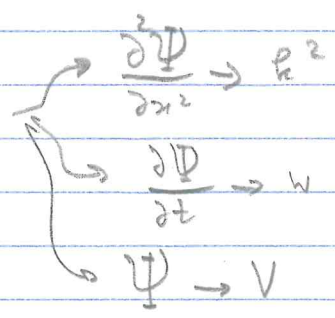 ∂²Ψ/∂x² → k²
∂Ψ/∂t → w
Ψ → V